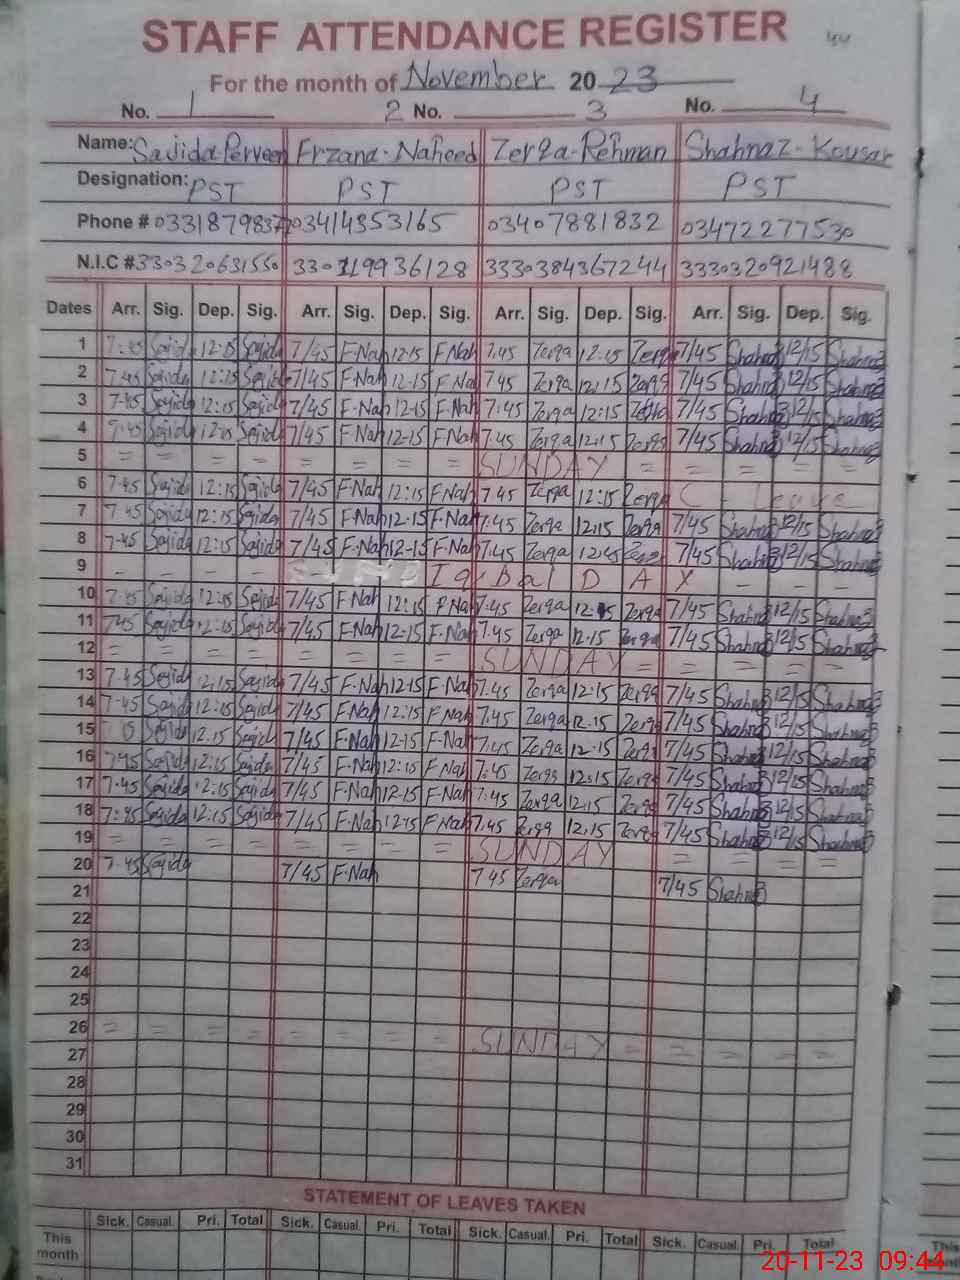 STAFF ATTENDANCE REGISTER
For the month of November 20 23
No. 1 2 No. 3 No. 4
Name: Sajida Perveen Frzana-Naheed Zerqa-Rehman Shahnaz-Kousar
Designation: PST PST PST PST
Phone # 03414353165 03407881832 03472277530
N.I.C # 3330384367244 3330320921488
Dates Arr. Sig. Dep. Sig. Arr. Sig. Dep. Sig. Arr. Sig. Dep. Sig. Arr. Sig. Dep. Sig.
1 7:45 Sajida 12:15 Sajida 7/45 F-Nah 12-15 F.Nah 7:45 Zerqa 12:15 Zerqa 7/45 Shahnaz 12/15 Shahnaz
2 7:45 Sajida 12:15 Sajida 7/45 F-Nah 12-15 F.Nah 7 45 Zerqa 12:15 Zerqa 7/45 Shahnaz 12/15 Shahnaz
3 7-45 Sajida 12:15 Sajida 7/45 F-Nah 12-15 F.Nah 7:45 Zerqa 12:15 7/45 Shahnaz 12/15 Shahnaz
4 Sajida 12:15 Sajida 7/45 F-Nah 12-15 F.Nah 7:45 Zerqa 12:15 Zerqa 7/45 Shahnaz 12/15 Shahnaz
5 = = = = = = = = SUNDAY = = = = =
6 7-45 Sajida 12:15 Sajida 7/45 F-Nah 12:15 F-Nah 7 45 Zerqa 12:15 Zerqa C - Leave
7 7-45 Sajida 12:15 Sajida 7/45 F-Nah 12-15 F-Nah 7:45 Zerqa 12:15 Zerqa 7/45 Shahnaz 12/15 Shahnaz
8 7-45 Sajida 12:15 Sajida 7/45 F-Nah 12-15 F-Nah 7:45 Zerqa 7/45 Shahnaz 12/15 Shahnaz
9 - - - - Iq Bal DAY - - -
10 7-45 Sajida 12:15 Sajida 7/45 F-Nah 12:15 F-Nah 7:45 Zerqa 12:15 Zerqa 7/45 Shahnaz 12/15 Shahnaz
11 7:45 Sajida 12:15 Sajida 7/45 F-Nah 12-15 F-Nah 7:45 Zerqa 12:15 Zerqa 7/45 Shahnaz 12/15 Shahnaz
12 = = = = = = = = SUNDAY = = = = =
13 7-45 Sajida 12:15 Sajida 7/45 F-Nah 12-15 F-Nah 7:45 Zerqa 12:15 Zerqa 7/45 Shahnaz 12/15 Shahnaz
14 7-45 Sajida 12:15 Sajida 7/45 F-Nah 12:15 F-Nah 7:45 Zerqa 12:15 Zerqa 7/45 Shahnaz 12/15 Shahnaz
15 Sajida 12:15 Sajida 7/45 F-Nah 12-15 F-Nah 7:45 Zerqa 12:15 Zerqa 7/45 Shahnaz 12/15 Shahnaz
16 7:45 Sajida 12:15 Sajida 7/45 F-Nah 12:15 F-Nah 7:45 Zerqa 12:15 Zerqa 7/45 Shahnaz 12/15 Shahnaz
17 7-45 Sajida 12:15 Sajida 7/45 F-Nah 12-15 F-Nah 7:45 Zerqa 12:15 Zerqa 7/45 Shahnaz 12/15 Shahnaz
18 7:45 Sajida 12:15 Sajida 7/45 F-Nah 12-15 F-Nah 7:45 Zerqa 12:15 Zerqa 7/45 Shahnaz 12/15 Shahnaz
19 = = = = = = = = SUNDAY = = = =
20 7-45 Sajida 7/45 F-Nah 7 45 Zerqa 7/45 Shahnaz
21
22
23
24
25
26 = = = = = = = = SUNDAY = = = = =
27
28
29
30
31
STATEMENT OF LEAVES TAKEN
Sick. Casual. Pri. Total Sick. Casual. Pri. Total Sick. Casual. Pri. Total Sick. Casual. Pri. Total
This month
This
20-11-23 09:44